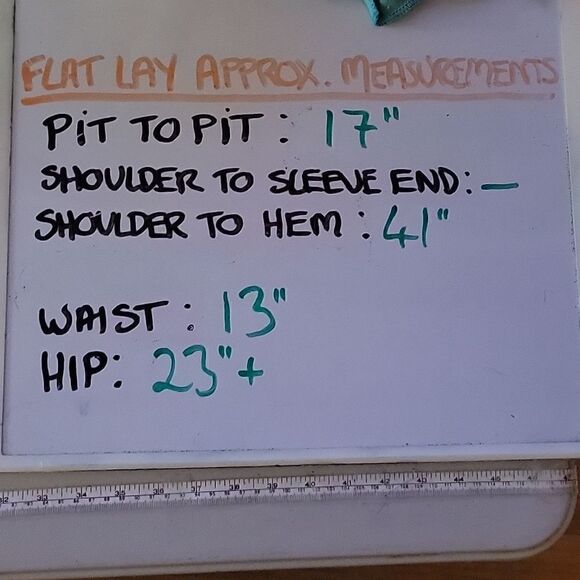 FLAT LAY APPROX. MEASUREMENTS
PiT TO PiT : 17"
SHOULDER TO SLEEVE END: —
SHOULDER TO HEM : 41"
WAIST : 13"
HIP: 23"+